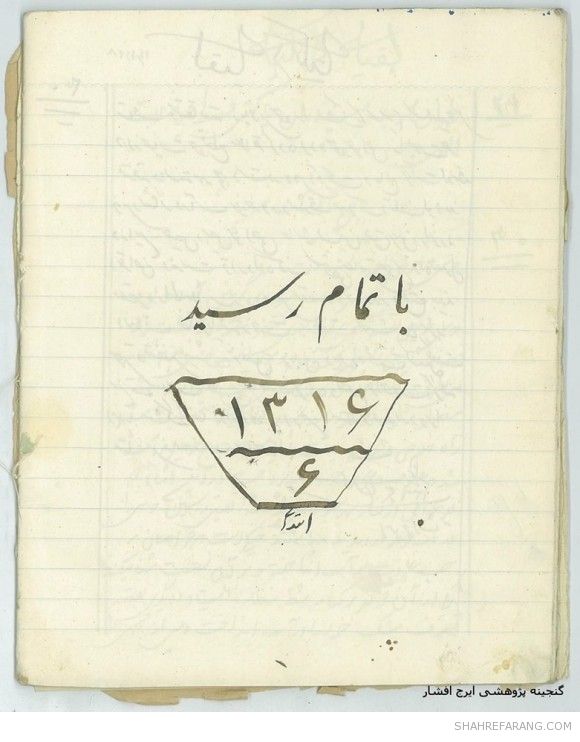 باتمام رسید
۱۳۱۶
۶
گنجینه پژوهشی ایرج افشار
SHAHREFARANG.COM